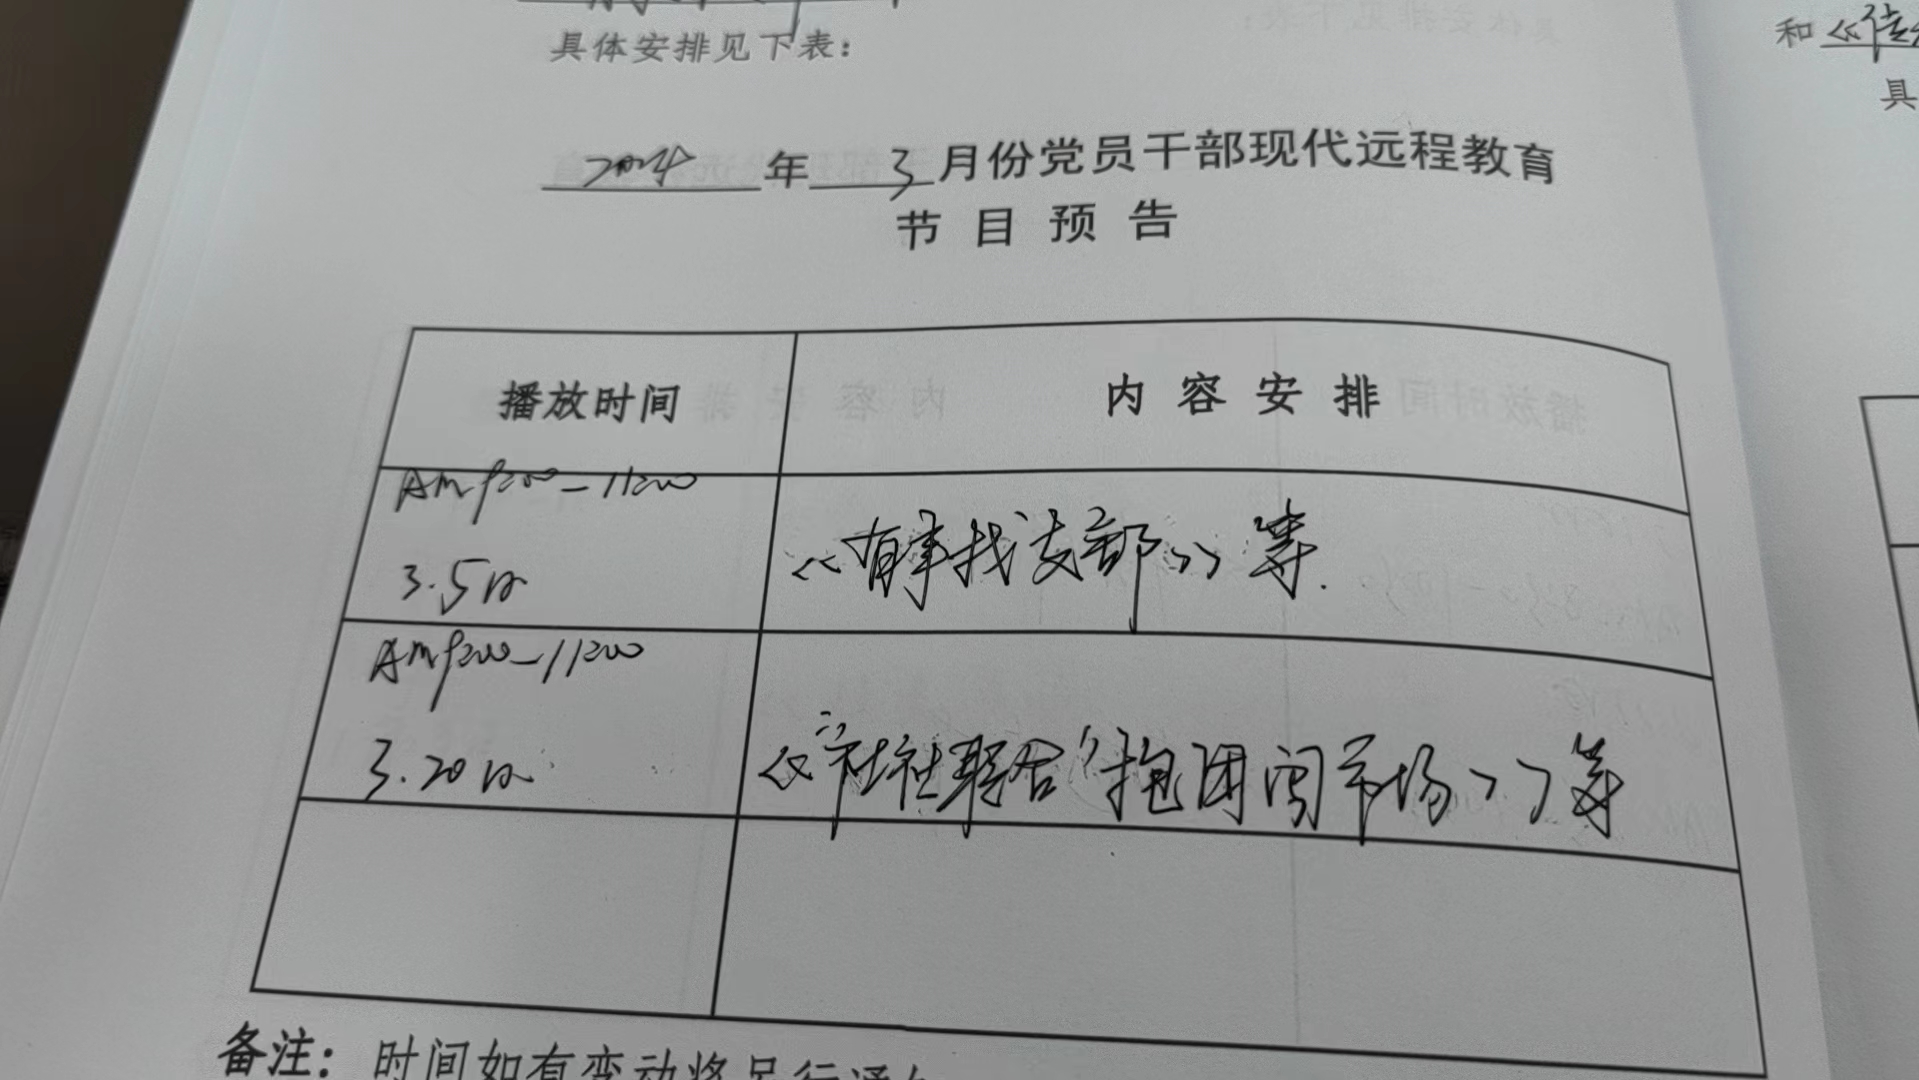 具体安排见下表：
2024年3月份党员干部现代远程教育
节目预告
播放时间 内容安排
AM9:00-11:00
3.5日
《有事找支部》等.
AM9:00-11:00
3.20日
《"社社联合"抱团闯市场》等
备注：时间如有变动将另行通知
和《
具